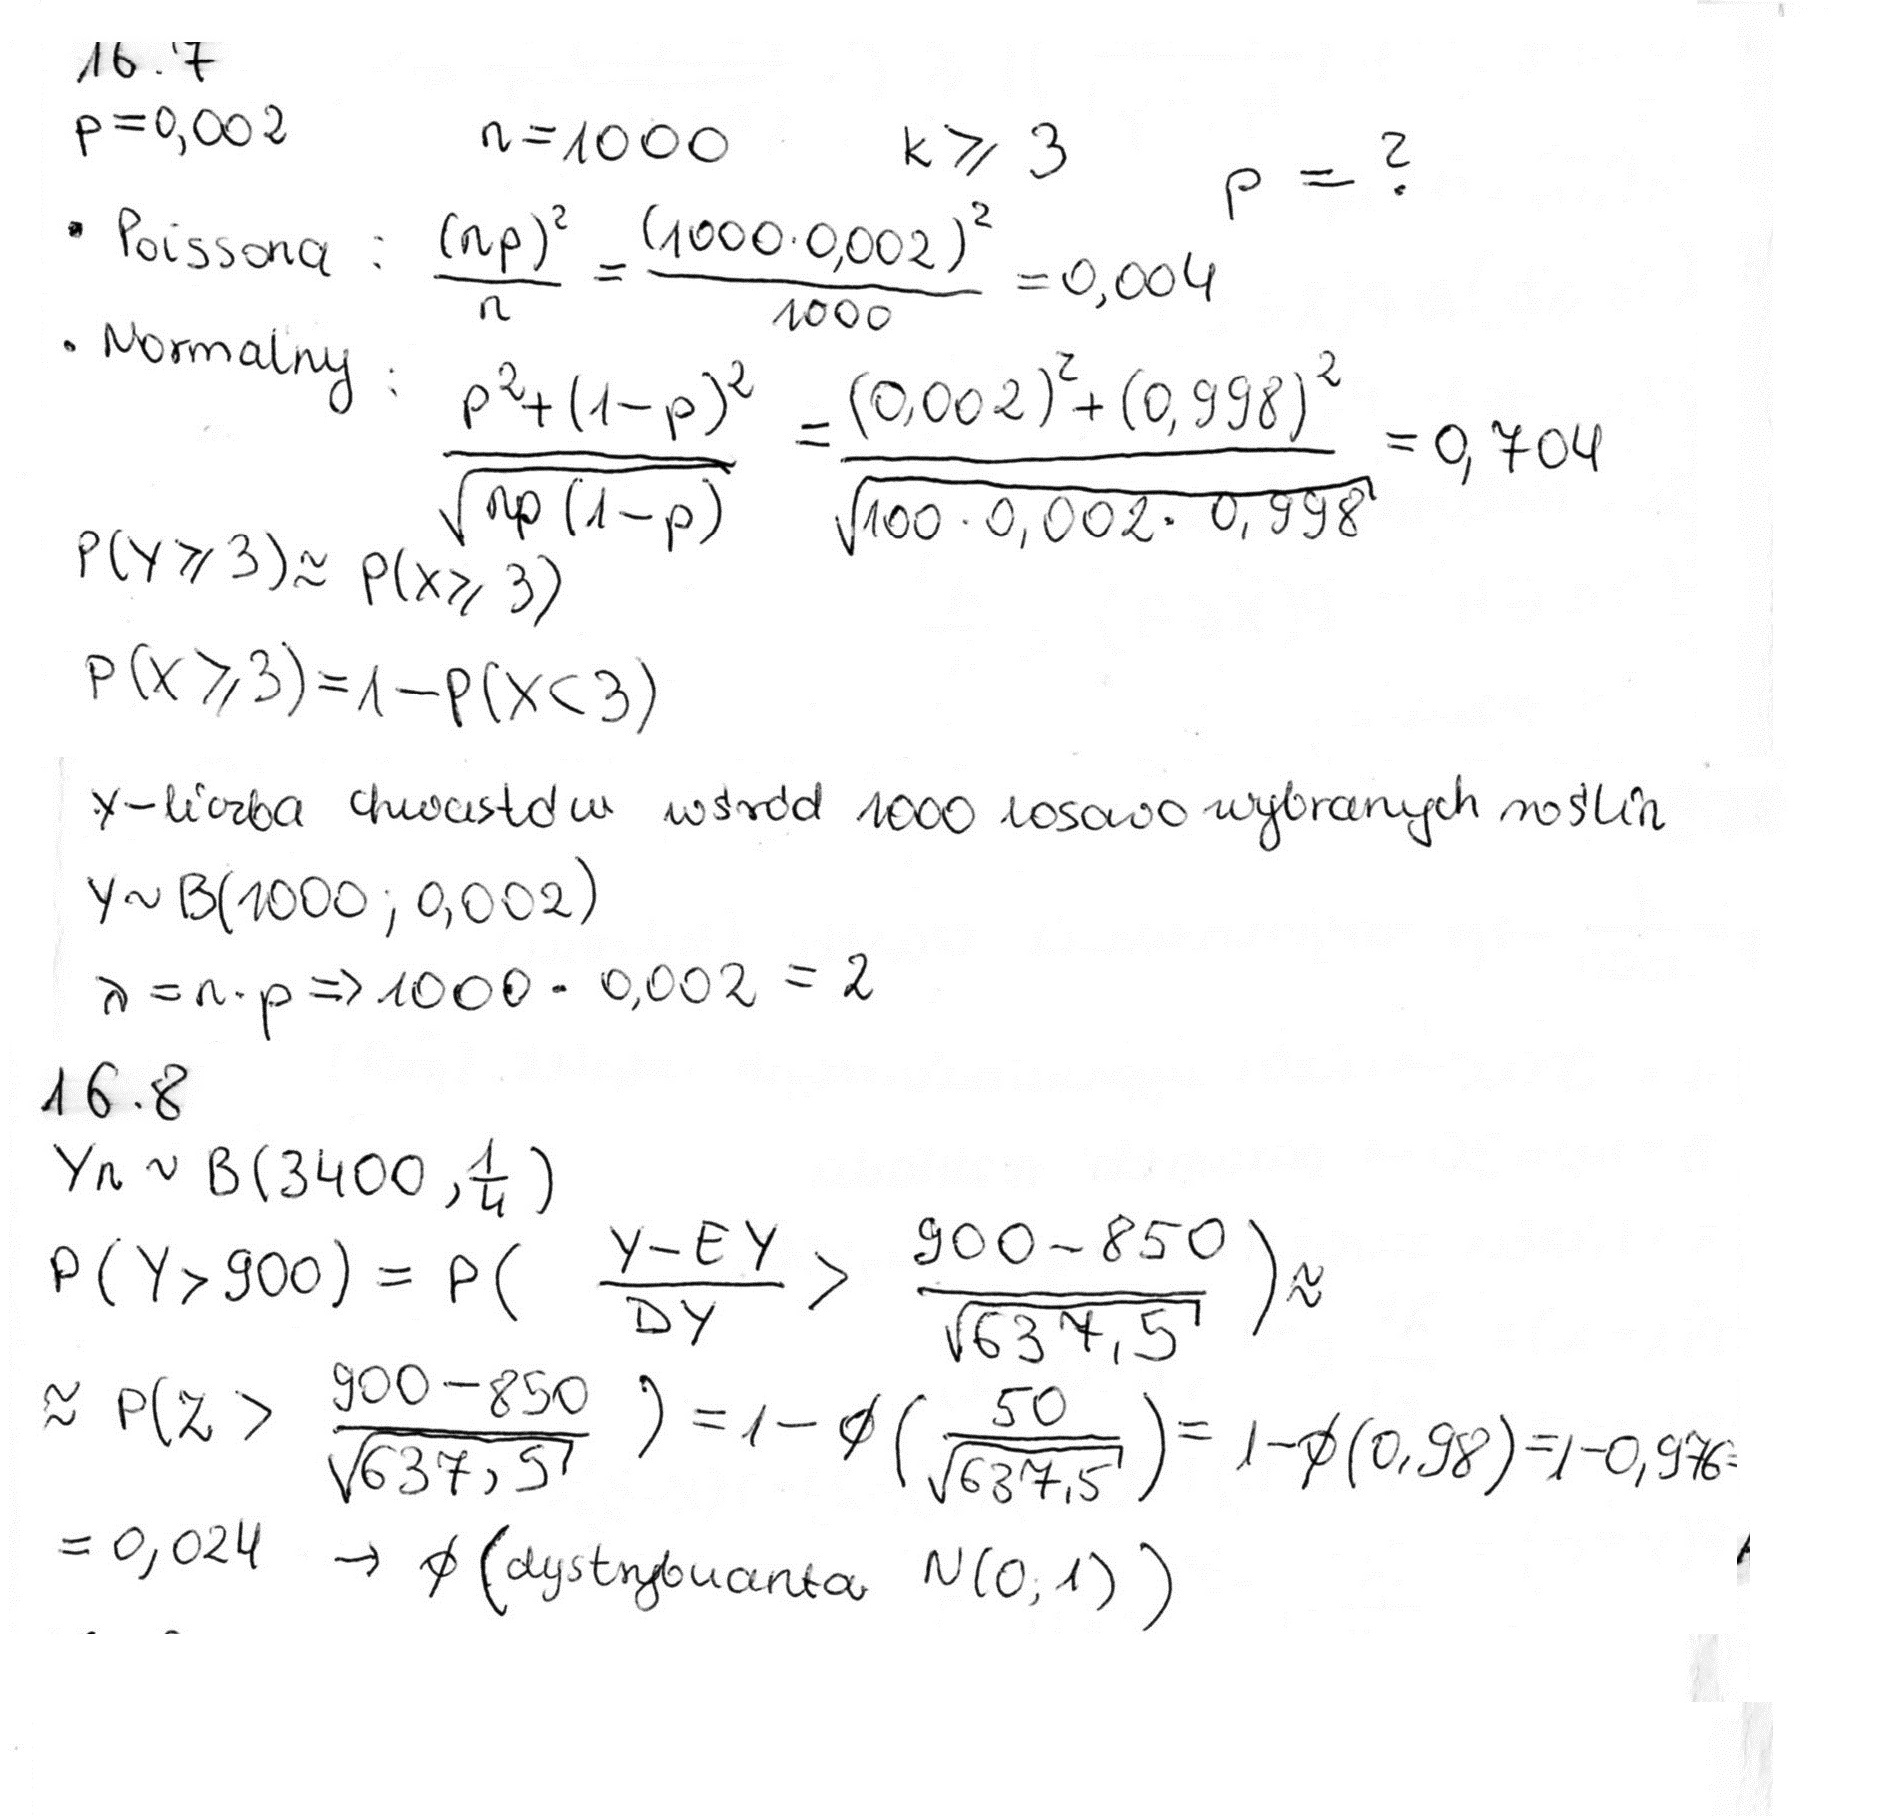 16.7
p=0,002 n=1000 k⩾3 p=?
• Poissona: (np)²/n = (1000·0,002)²/1000 = 0,004
• Normalny: p²+(1-p)²/√np(1-p) = (0,002)²+(0,998)²/√100·0,002·0,998 = 0,704
P(Y⩾3)≈P(X⩾3)
P(X⩾3)=1-P(X<3)
Y-liczba chwastów wśród 1000 losowo wybranych roślin
Y~B(1000; 0,002)
λ=n·p=>1000·0,002=2
16.8
Yn~B(3400,1/4)
P(Y>900)=P(Y-EY/DY > 900-850/√637,5)≈
≈P(Z>900-850/√637,5)=1-ϕ(50/√637,5)=1-ϕ(0,98)=1-0,976=
=0,024 → ϕ(dystrybuanta N(0,1))